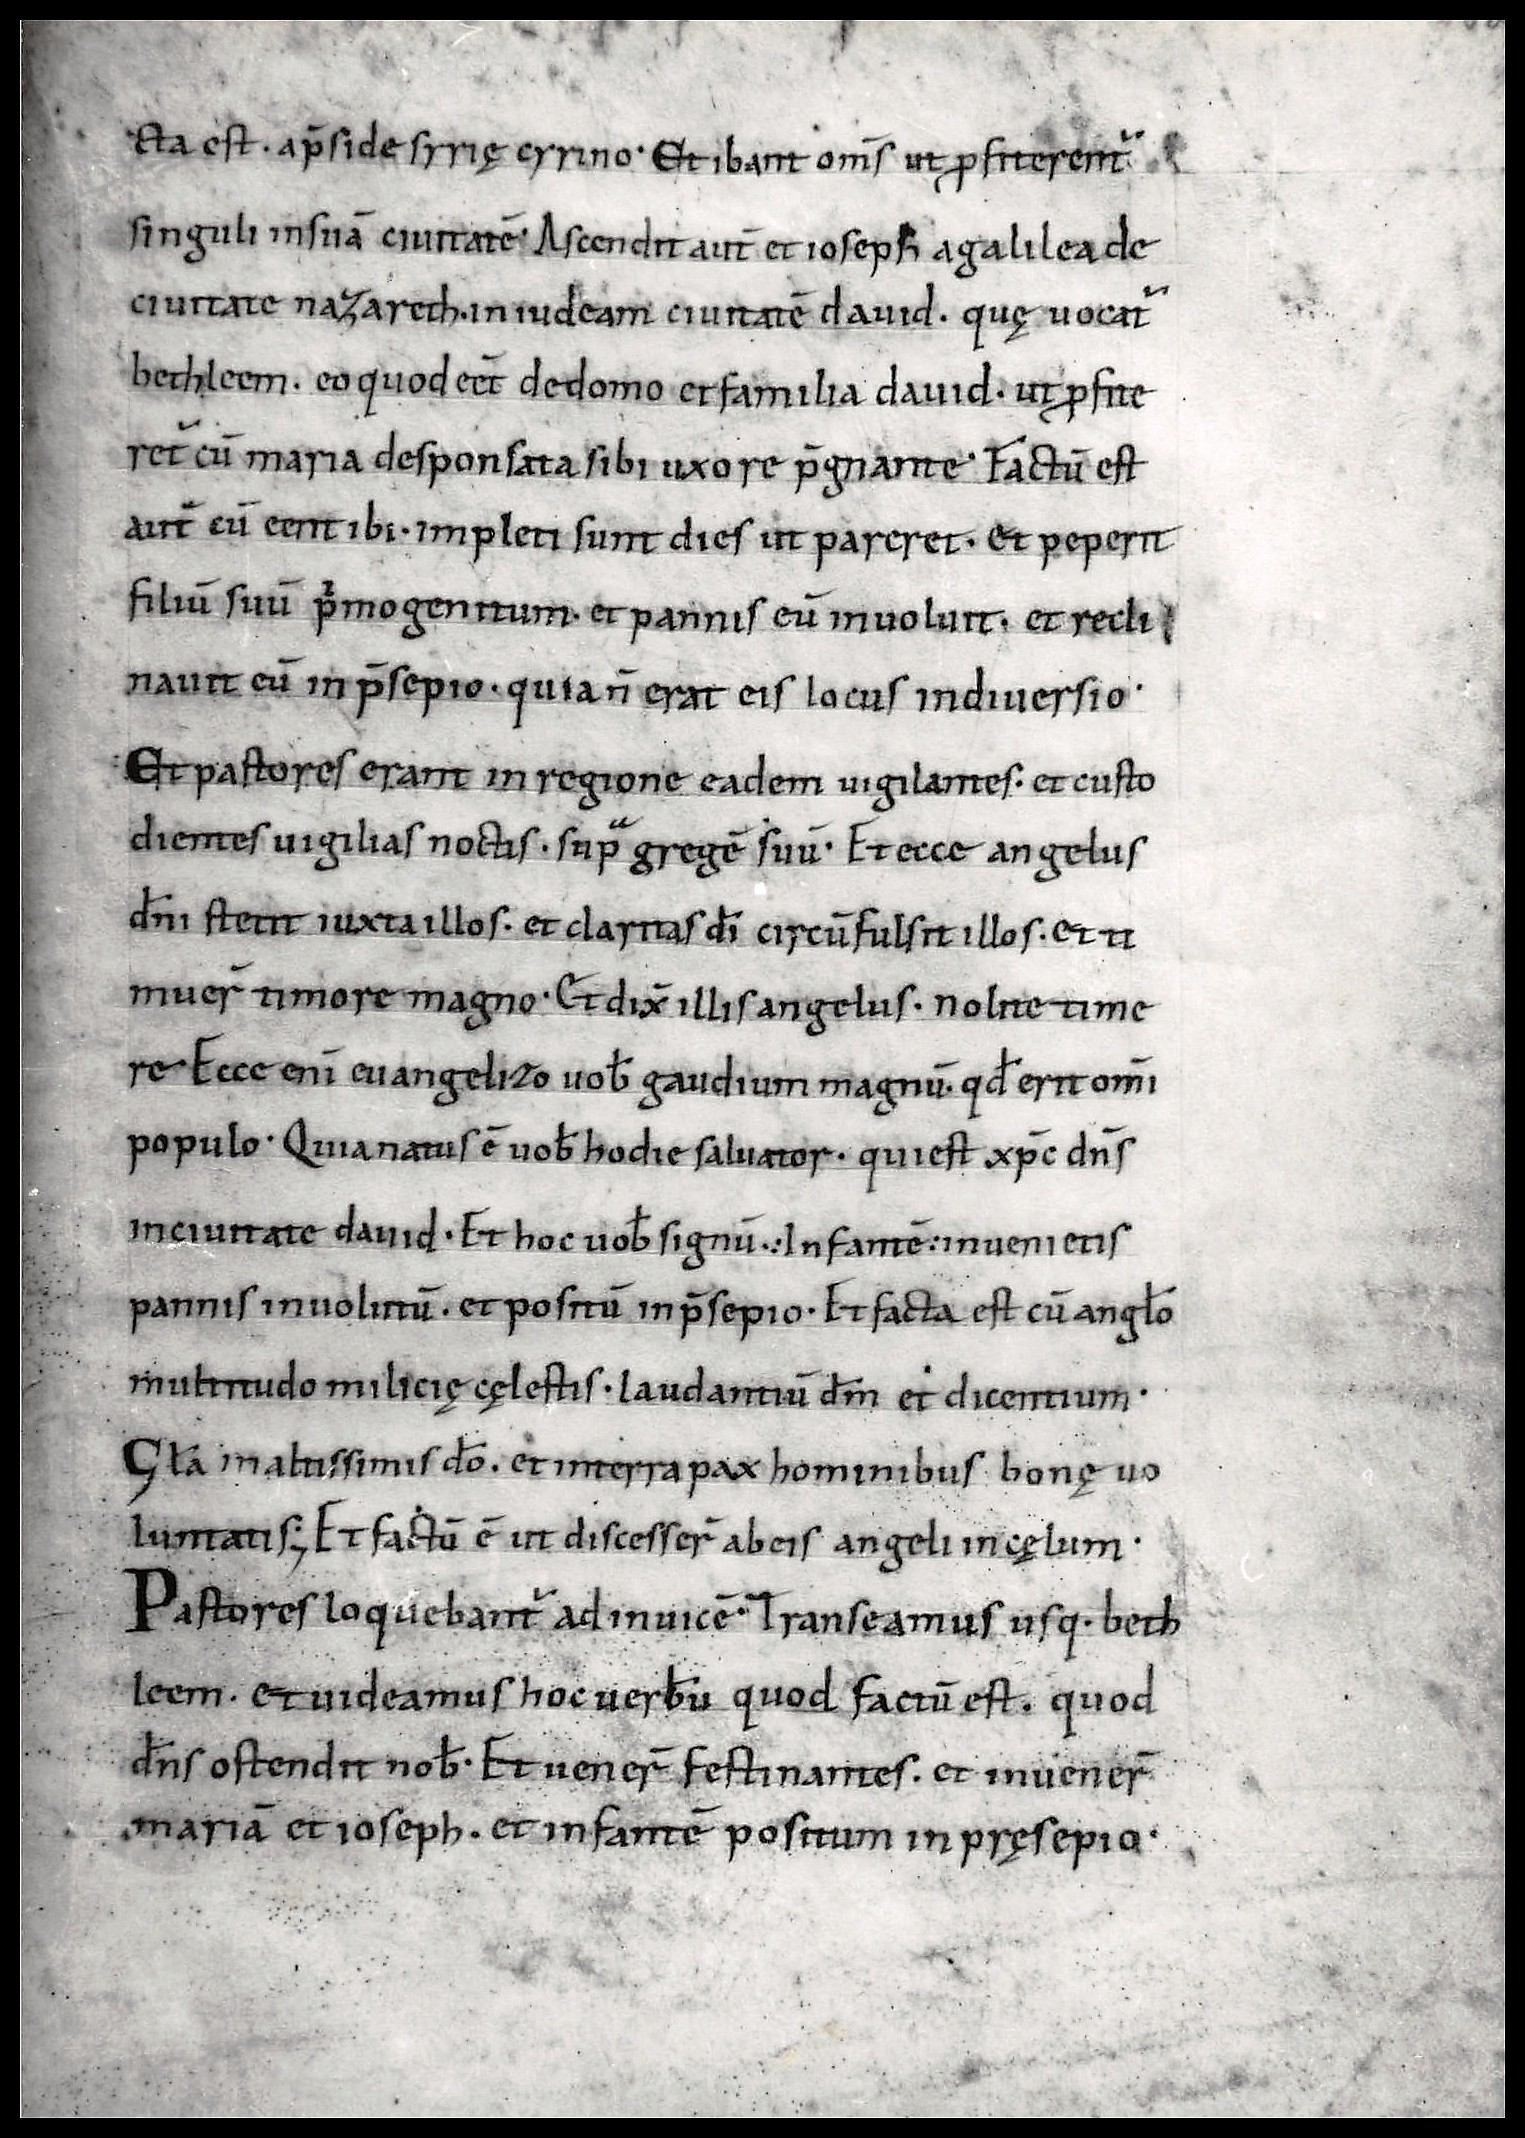 cta est. ap̄side syrię cyrino. Et ibant om̄s ut ꝓfiterent᷑
singuli insuā ciuitatē. Ascendit aut̄ et ioseph agalilea de
ciuitate nazareth. in iudeam ciuitatē dauid. quę uocat᷑
bethleem. eo quod eēt dedomo et familia dauid. ut ꝓfite
ret᷑ cū maria desponsata sibi uxore p̄gnante. Factū est
aut̄ cū eent ibi. impleti sunt dies ut pareret. Et peperit
filiū suū pͥmogenitum. et pannis eū inuoluit. et recli
nauit eū in p̄sepio. quia n̄ erat eis locus indiuersio.
Et pastores erant in regione eadem uigilantes. et custo
dientes uigilias noctis. supᷓ gregē suū. Et ecce angelus
dn̄i stetit iuxta illos. et claritas dī circūfulsit illos. et ti
muer̄ timore magno. Et dix̄ illis angelus. nolite time
re. Ecce eni̅ euangelizo uob̄ gaudium magnū. qd̄ erit om̄i
populo. Quia natus ē uob̄ hodie saluator. qui est xp̄c dn̄s
inciuitate dauid. Et hoc uob̄ signū.:Infantē: inuenietis
pannis inuolutū. et positū in p̄sepio. Et facta est cū anglo̅
multitudo milicię cęlestis. laudantiū dm̄ et dicentium.
Gl̄a inaltissimis dō. et interra pax hominibus bonę uo
luntatis; Et factū ē ut discesser̄ abeis angeli in cęlum.
Pastores loquebant᷑ adinuicē. Transeamus usq. beth
leem. et uideamus hoc uerb̄u quod factū est. quod
dn̄s ostendit nob̄. Et uener̄ festinantes. et inuener̄
mariā et ioseph. et infantē positum in pręsepio.